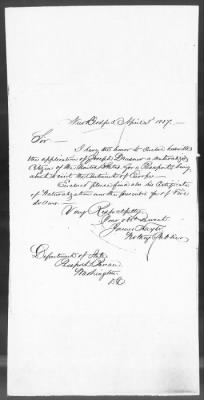 New Bedford, April 21st 1887.
Sir
I have the honor to enclose herewith
the application of Joseph a naturalized
Citizen of the United States, for a Passport, being
about to visit the Continent of Europe
Enclosed please find also his Certificate
of Naturalization and the prescribed fee of Five
dollars.
Very Respectfully
Your obt Servant
James Taylor
Notary Public
Department of State
Passport Bureau
Washington
D.C.